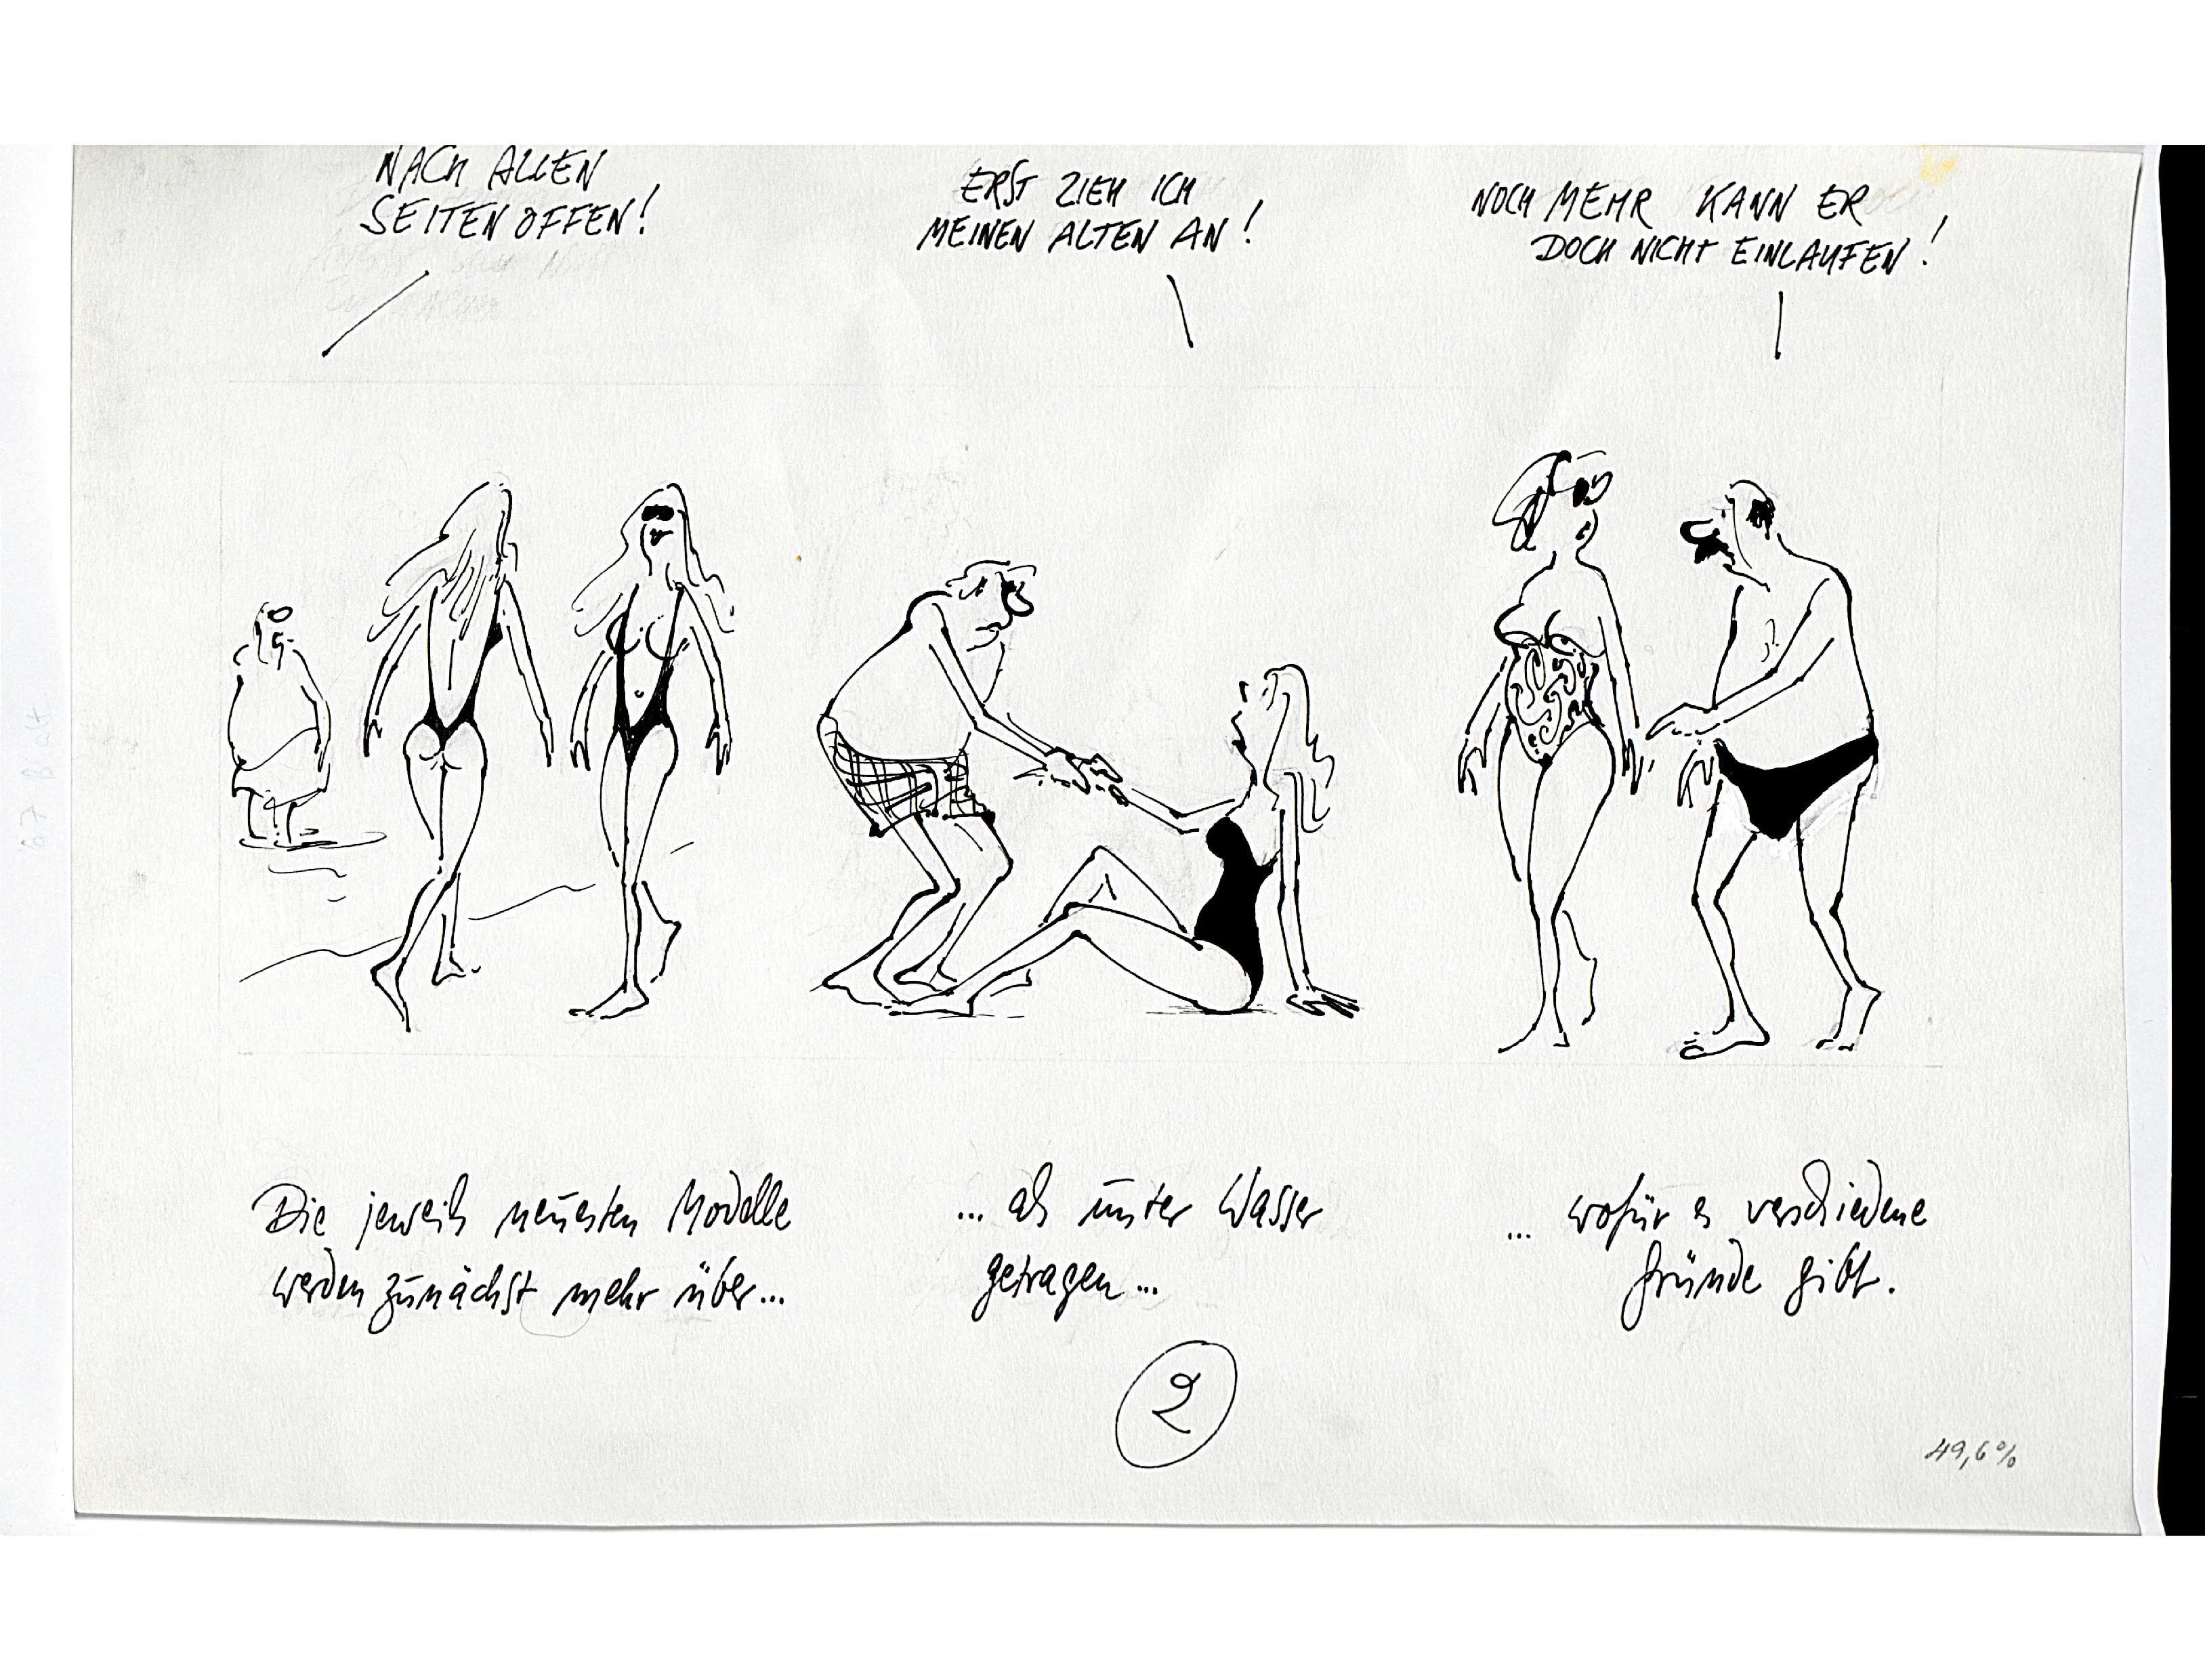 NACH ALLEN
SEITEN OFFEN!
ERST ZIEH ICH
MEINEN ALTEN AN!
NOCH MEHR KANN ER
DOCH NICHT EINLAUFEN!
Die jeweils neuesten Modelle
werden zunächst mehr über...
... als unter Wasser
getragen...
... wofür es verschiedene
Gründe gibt.
2
49,6%
67 Blatt